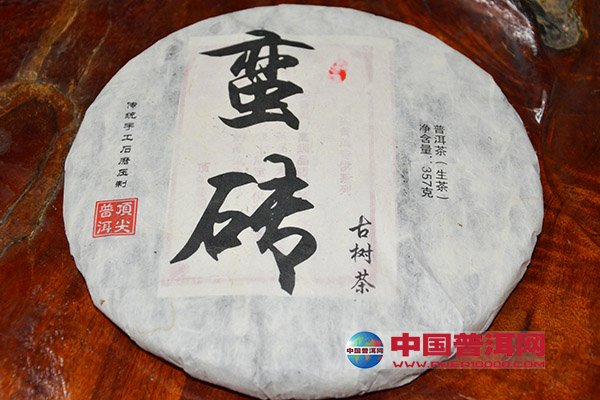 蛮砖
古树茶
普洱茶（生茶）
净含量：357克
传统手工石磨压制
頂尖
普洱
中国普洱网
中国普洱网
www.PUER10000.COM